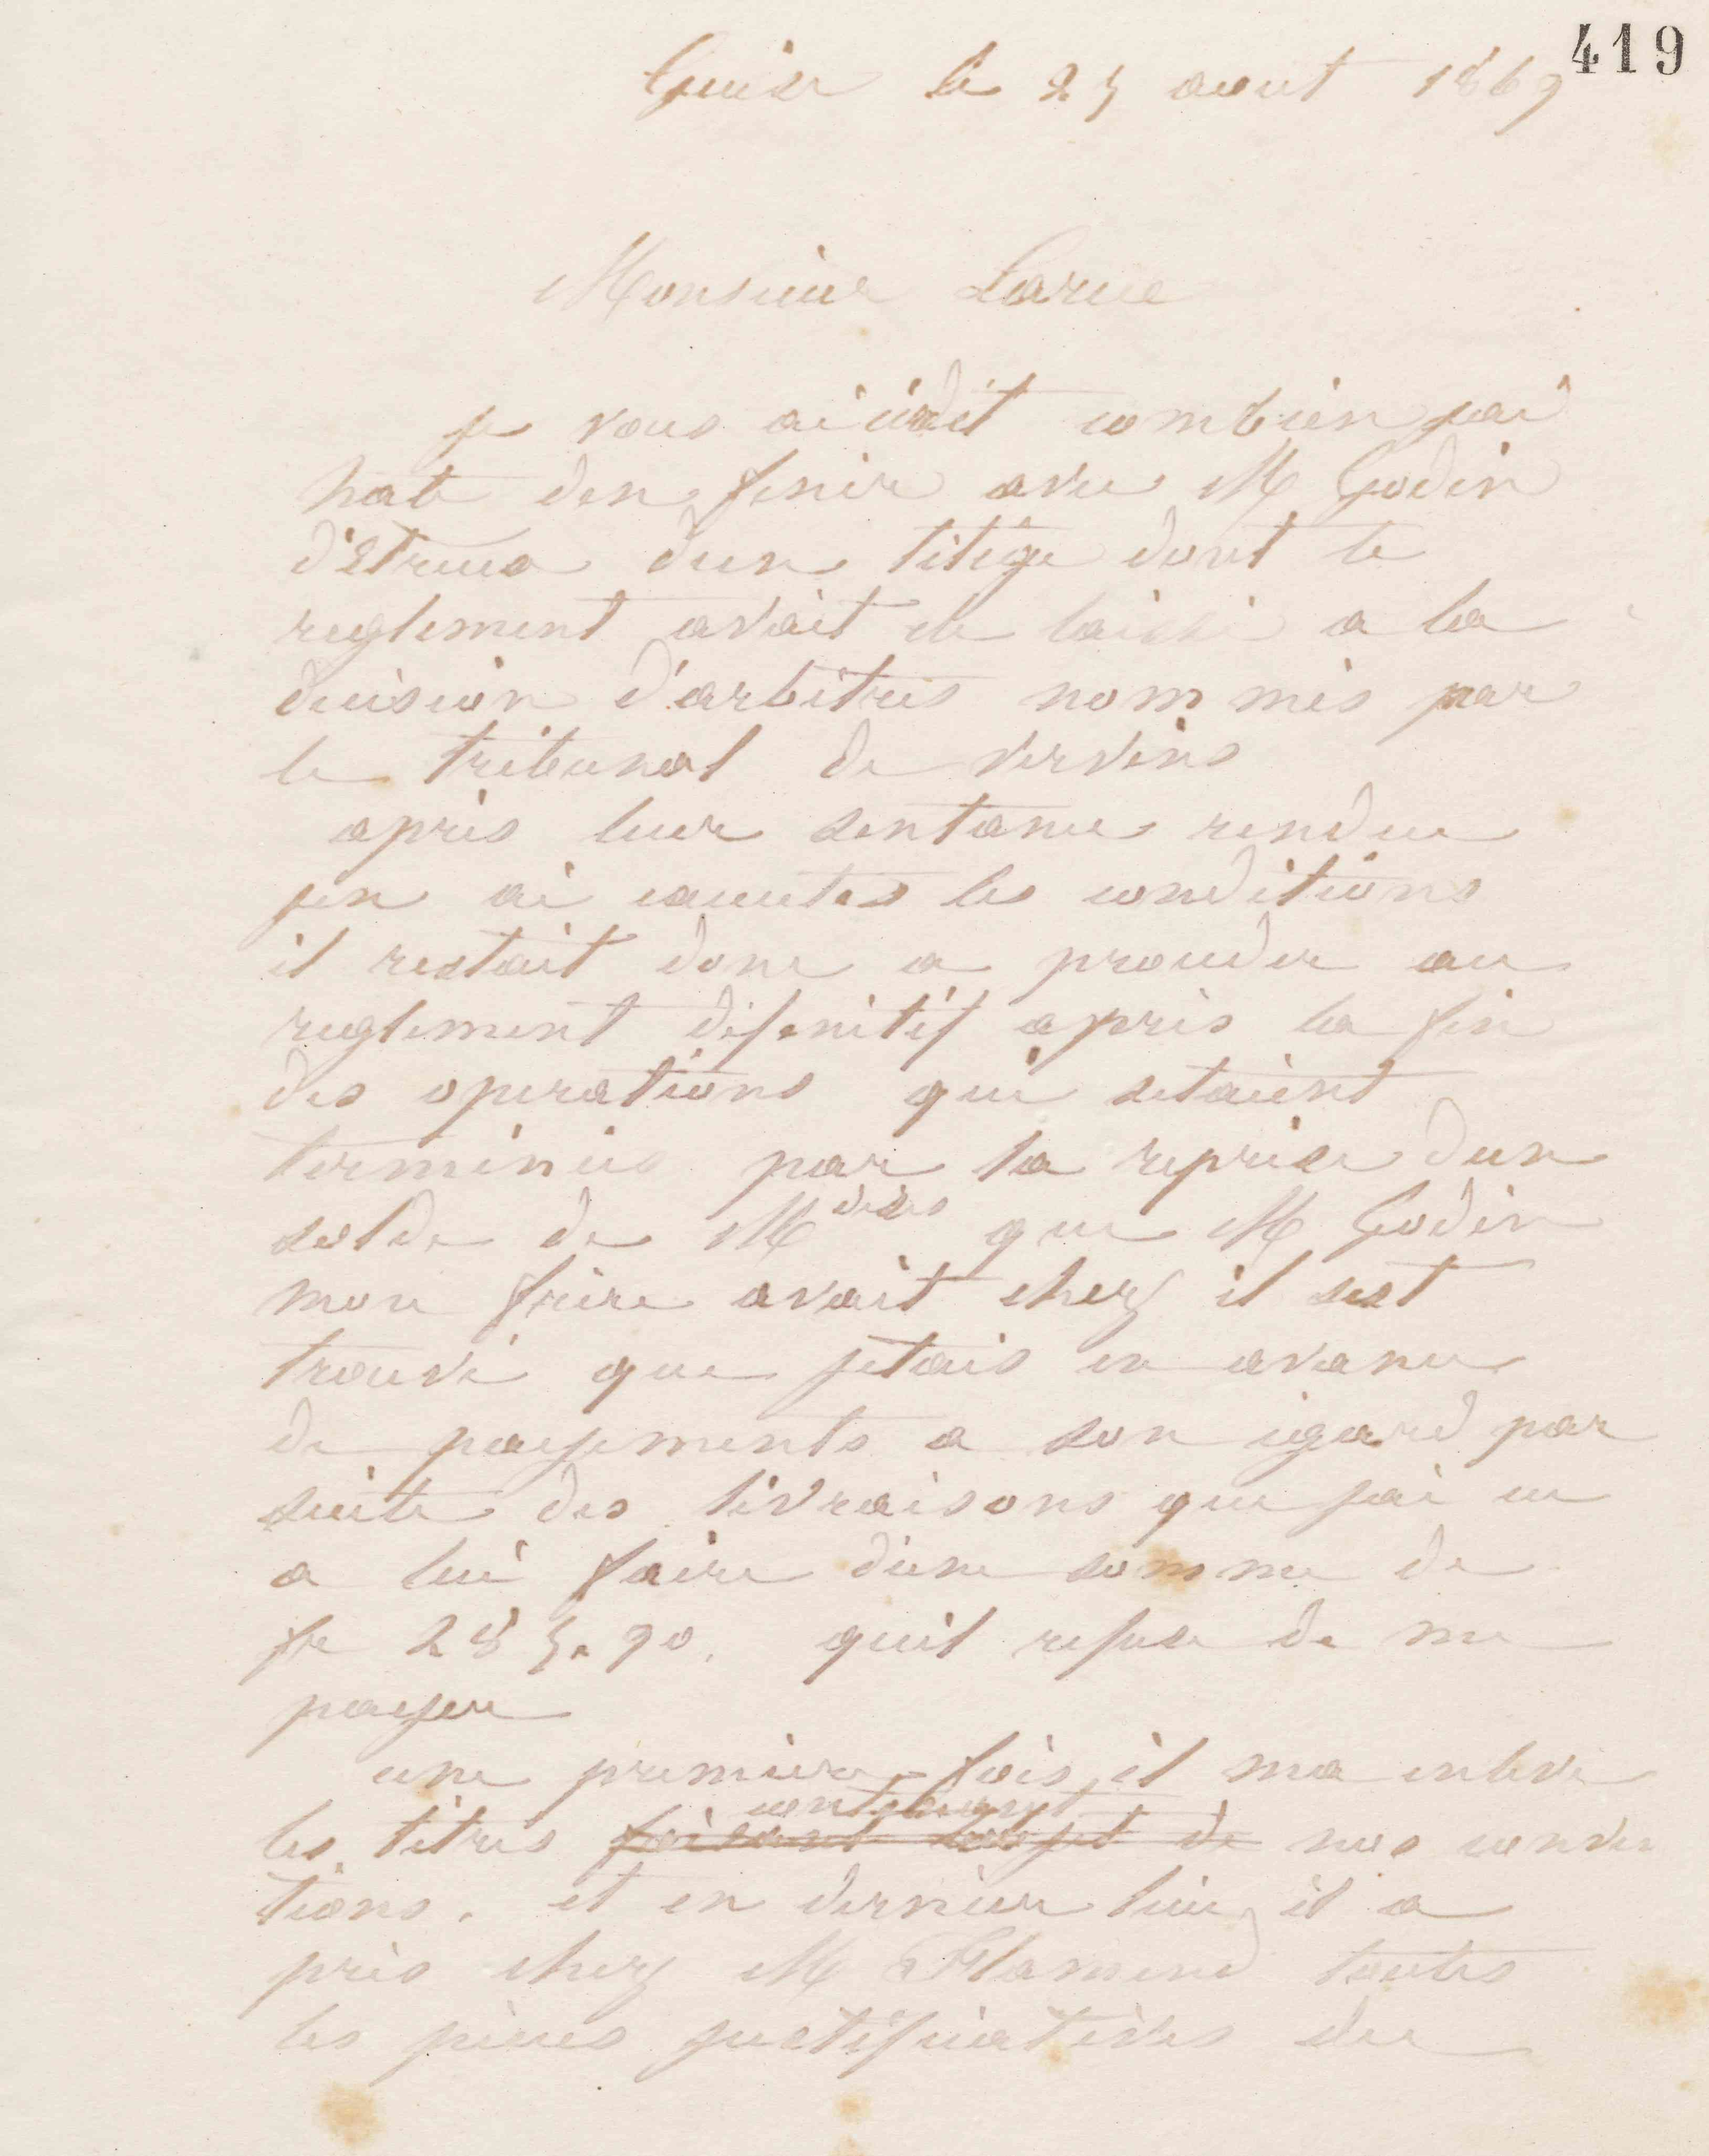 419
Guise le 25 aout 1869
Monsieur Larue
je vous ai écrit combien jai
hate den finir avec M Godin
d'Etreux dun litige dont le
reglement avait été laissé a la
decision d'arbitres nommés par
le tribunal de Vervins
après leur sentance rendue
jen ai executés les conditions
il restait donc a proceder au
reglement difenitif après la fin
des operations qui setaient
terminées par la reprise dun
solde de Mdises que M Godin
mon frère avait chez il sest
trouvé que jetais en avance
de payements a son égard par
suite des livraisons que jai eu
a lui faire dune somme de
fr 285.90. quil refuse de me
payer
une premiere fois, il ma enlevé
contenant
les titres faisant de nos conven
tions. et en dernier lieu, il a
pris chez M Flamand toutes
les pieces justificatives du